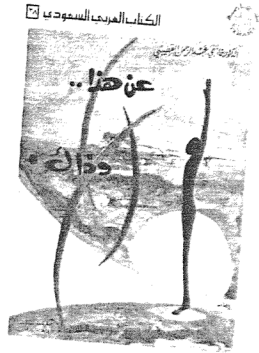 الكتاب العربي السعودي
الدكتور غازي عبد الرحمن القصيبي
عن هذا..
وذاك